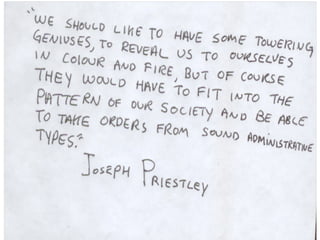 "WE SHOULD LIKE TO HAVE SOME TOWERING
GENIUSES, TO REVEAL US TO OURSELVES
IN COLOUR AND FIRE, BUT OF COURSE
THEY WOULD HAVE TO FIT INTO THE
PATTERN OF OUR SOCIETY AND BE ABLE
TO TAKE ORDERS FROM SOUND ADMINISTRATIVE
TYPES."
JOSEPH PRIESTLEY